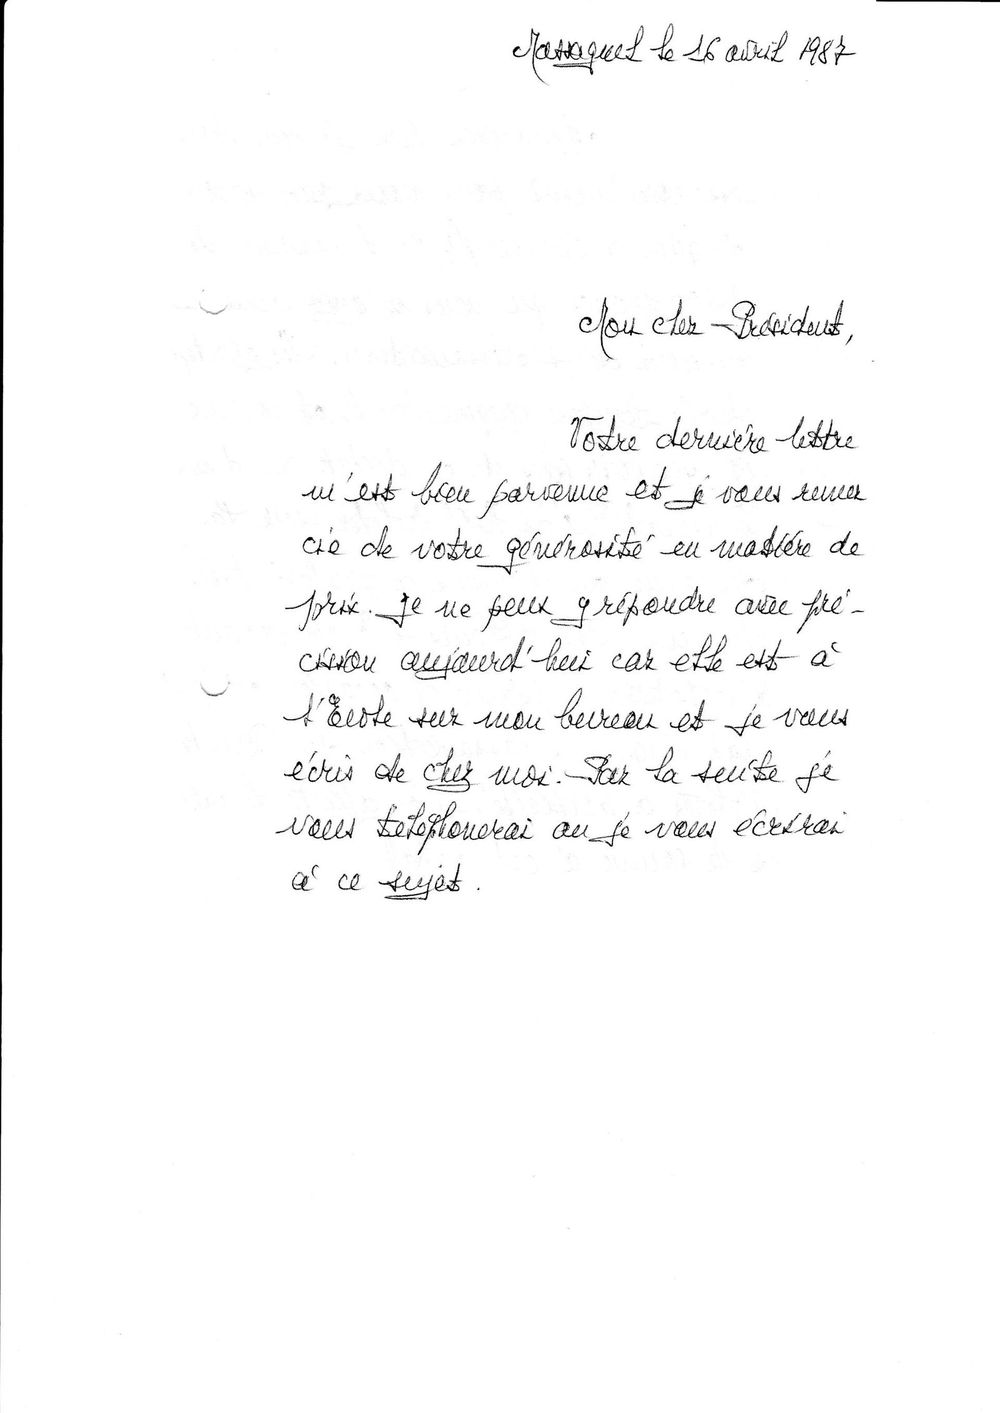 Massaguel le 16 avril 1987
Mon cher Président,
Votre dernière lettre
m'est bien parvenue et je vous remer
cie de votre générosité en matière de
prix. Je ne peux y répondre avec pré-
cision aujourd'hui car elle est à
l'Ecole sur mon bureau et je vous
écris de chez moi. Par la suite je
vous telephonerai ou je vous écrirai
à ce sujet.